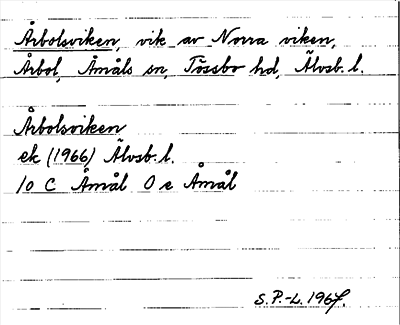 Årbolsviken, vik av Norra viken,
Årbol, Åmåls sn, Tössbo hd, Älvsb. l.
Årbolsviken
ek (1966) Älvsb. l.
10 C Åmål O e Åmål
S. P.-L. 1967.